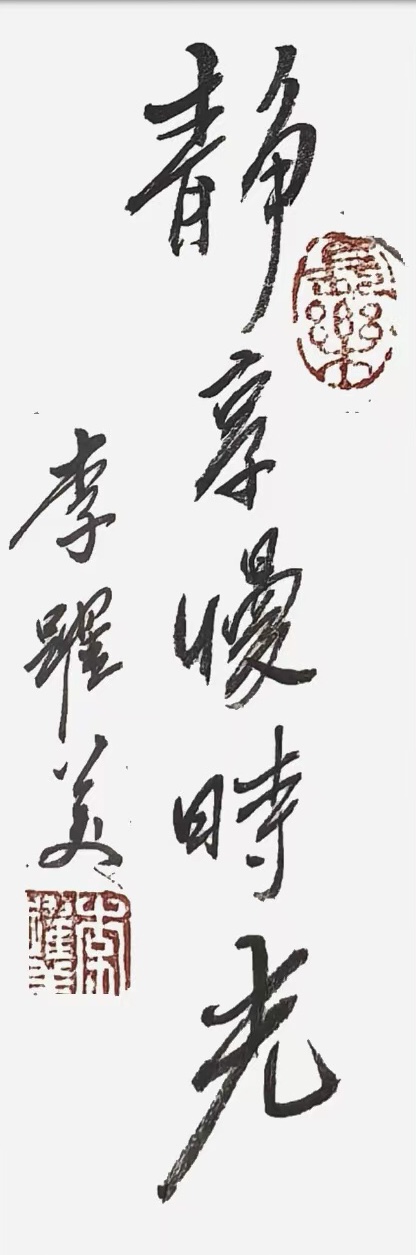 静享慢時光
李躍美